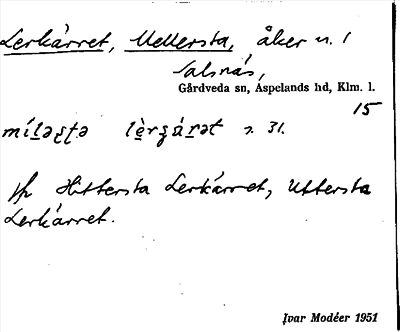 Lerkärret, Mellersta, åker n. 1
Salsnäs,
Gårdveda sn, Aspelands hd, Klm. l.
15
s. 31.
Hittersta Lerkärret, Uttersta
Lerkärret.
Ivar Modéer 1951